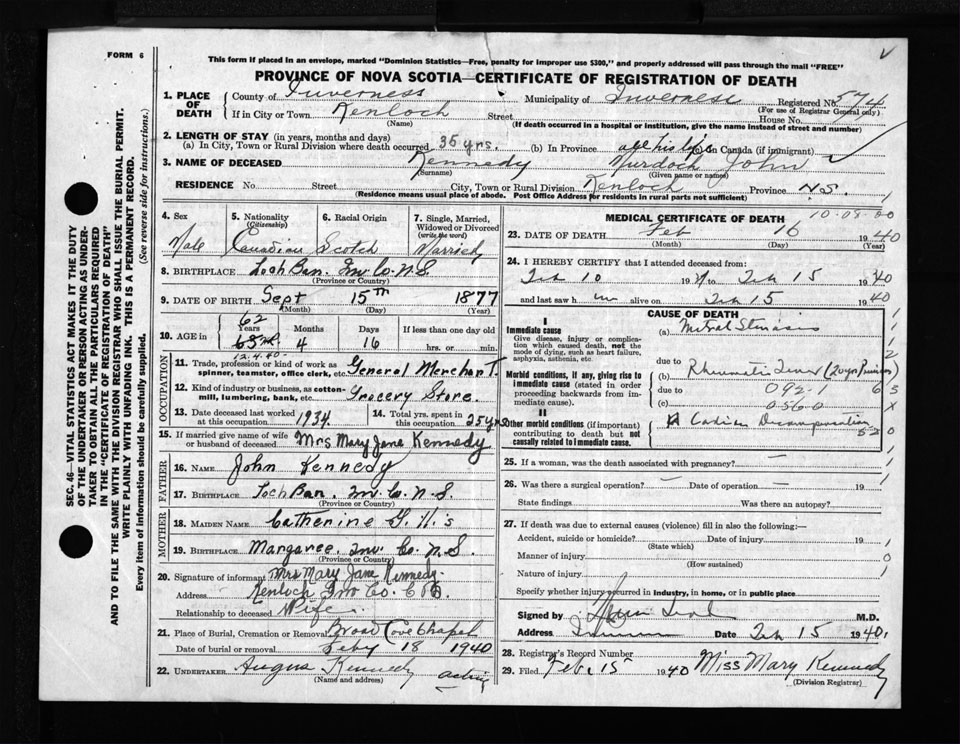 FORM 6
This form if placed in an envelope, marked "Dominion Statistics—Free, penalty for improper use $300," and properly addressed will pass through the mail "FREE"
PROVINCE OF NOVA SCOTIA—CERTIFICATE OF REGISTRATION OF DEATH
SEC. 46—VITAL STATISTICS ACT MAKES IT THE DUTY
OF THE UNDERTAKER OR PERSON ACTING AS UNDER-
TAKER TO OBTAIN ALL THE PARTICULARS REQUIRED
IN THE "CERTIFICATE OF REGISTRATION OF DEATH"
AND TO FILE THE SAME WITH THE DIVISION REGISTRAR WHO SHALL ISSUE THE BURIAL PERMIT.
WRITE PLAINLY WITH UNFADING INK. THIS IS A PERMANENT RECORD.
Every item of information should be carefully supplied. (See reverse side for instructions.)
1. PLACE OF DEATH County of Inverness Municipality of Inverness Registered No. 574
(For use of Registrar General only)
If in City or Town Kenloch Street House No.
(Name) (If death occurred in a hospital or institution, give the name instead of street and number)
2. LENGTH OF STAY (in years, months and days)
(a) In City, Town or Rural Division where death occurred 35 yrs. (b) In Province all his life In Canada (if immigrant)
3. NAME OF DECEASED Kennedy Murdoch John
(Surname) (Given name or names)
RESIDENCE No. Street City, Town or Rural Division Kenloch Province N.S.
(Residence means usual place of abode. Post Office Address for residents in rural parts not sufficient)
4. Sex 5. Nationality (Citizenship) 6. Racial Origin 7. Single, Married, Widowed or Divorced (write the word)
Male Canadian Scotch Married
8. BIRTHPLACE Loch Ban. Inv. Co. N.S.
(Province or Country)
9. DATE OF BIRTH Sept 15th 1877
(Month) (Day) (Year)
10. AGE in 62 Years Months 4 Days 16 If less than one day old hrs. or min.
12.4.40
OCCUPATION
11. Trade, profession or kind of work as spinner, teamster, office clerk, etc. General Merchant.
12. Kind of industry or business, as cotton-mill, lumbering, bank, etc. Grocery Store.
13. Date deceased last worked at this occupation 1934 14. Total yrs. spent in this occupation 25 yrs
15. If married give name of wife or husband of deceased Mrs Mary Jane Kennedy
FATHER
16. NAME John Kennedy
17. BIRTHPLACE Loch Ban. Inv. Co. N.S.
(Province or Country)
MOTHER
18. MAIDEN NAME Catherine
19. BIRTHPLACE Margaree. Inv Co. N.S.
(Province or Country)
20. Signature of informant Mrs Mary Jane Kennedy
Address Kenloch Inv Co. C B.
Relationship to deceased Wife.
21. Place of Burial, Cremation or Removal Broad Cove Chapel
Date of burial or removal Feby 18 1940
22. UNDERTAKER Angus Kennedy acting
(Name and address)
MEDICAL CERTIFICATE OF DEATH
10-08-00
23. DATE OF DEATH Feb 16 1940
(Month) (Day) (Year)
24. I HEREBY CERTIFY that I attended deceased from:
Feb 10 19 to Feb 15 1940
and last saw him alive on Feb 15 1940
CAUSE OF DEATH
I
Immediate cause
Give disease, injury, or complication which caused death, not the mode of dying, such as heart failure, asphyxia, asthenia, etc.
(a) Mitral Stenosis
due to
Morbid conditions, if any, giving rise to immediate cause (stated in order proceeding backwards from immediate cause).
(b) Rheumatic Fever (20 yrs Previous)
due to 092-1
(c) 056-0
II
Other morbid conditions (if important) contributing to death but not causally related to immediate cause.
Cardiac Decompensation
25. If a woman, was the death associated with pregnancy? —
26. Was there a surgical operation? — Date of operation — 19
State findings Was there an autopsy?
27. If death was due to external causes (violence) fill in also the following:—
Accident, suicide or homicide? Date of injury 19
(State which)
Manner of injury
(How sustained)
Nature of injury
Specify whether injury occurred in industry, in home, or in public place
Signed by M.D.
Address Date Feb 15 1940.
28. Registrar's Record Number
29. Filed Feb. 15 1940 Miss Mary Kennedy
(Division Registrar)